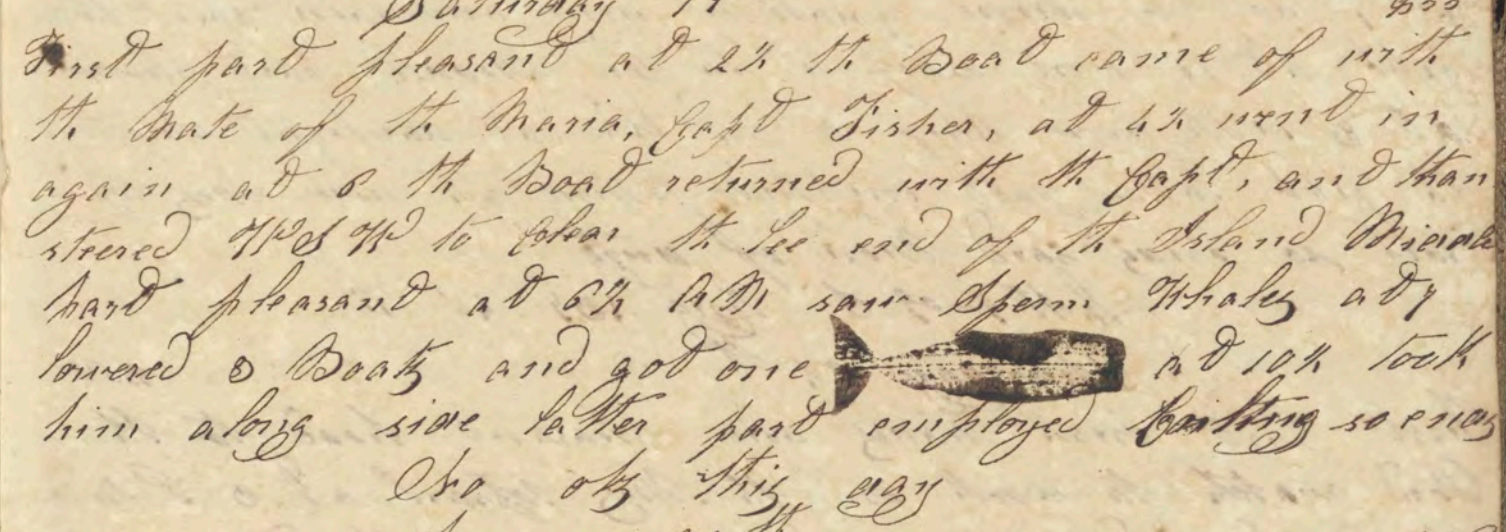 Saturday 17
First part pleasant at 2½ th Boat came of with
th Mate of th Maria, Capt Fisher, at 4½ went in
again at 6 th Boat returned with th Capt, and than
steered WSW to Clear th Lee end of th Island Middle
part pleasant at 6½ AM saw Sperm Whales at 7
lowered 3 Boats and got one at 10½ took
him along side latter part employed Cutting so ends
No obs this day